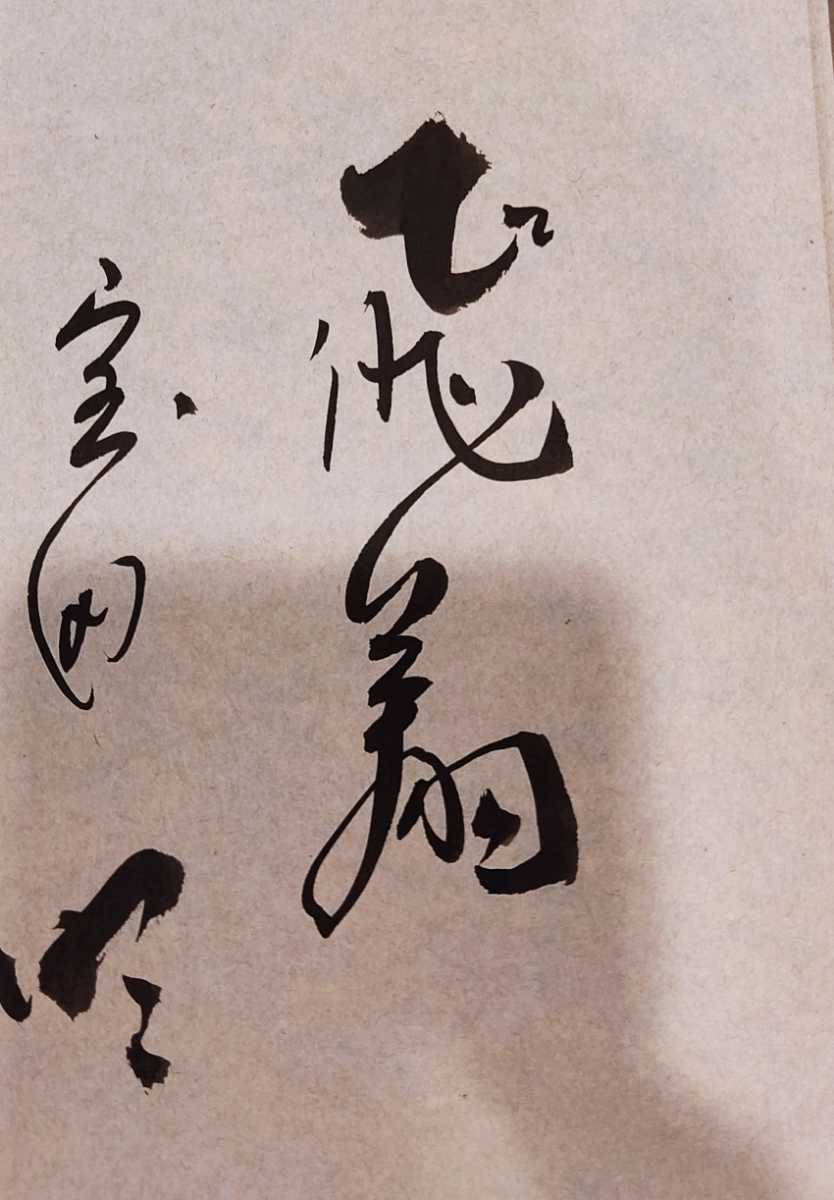 飛翔
宝田明